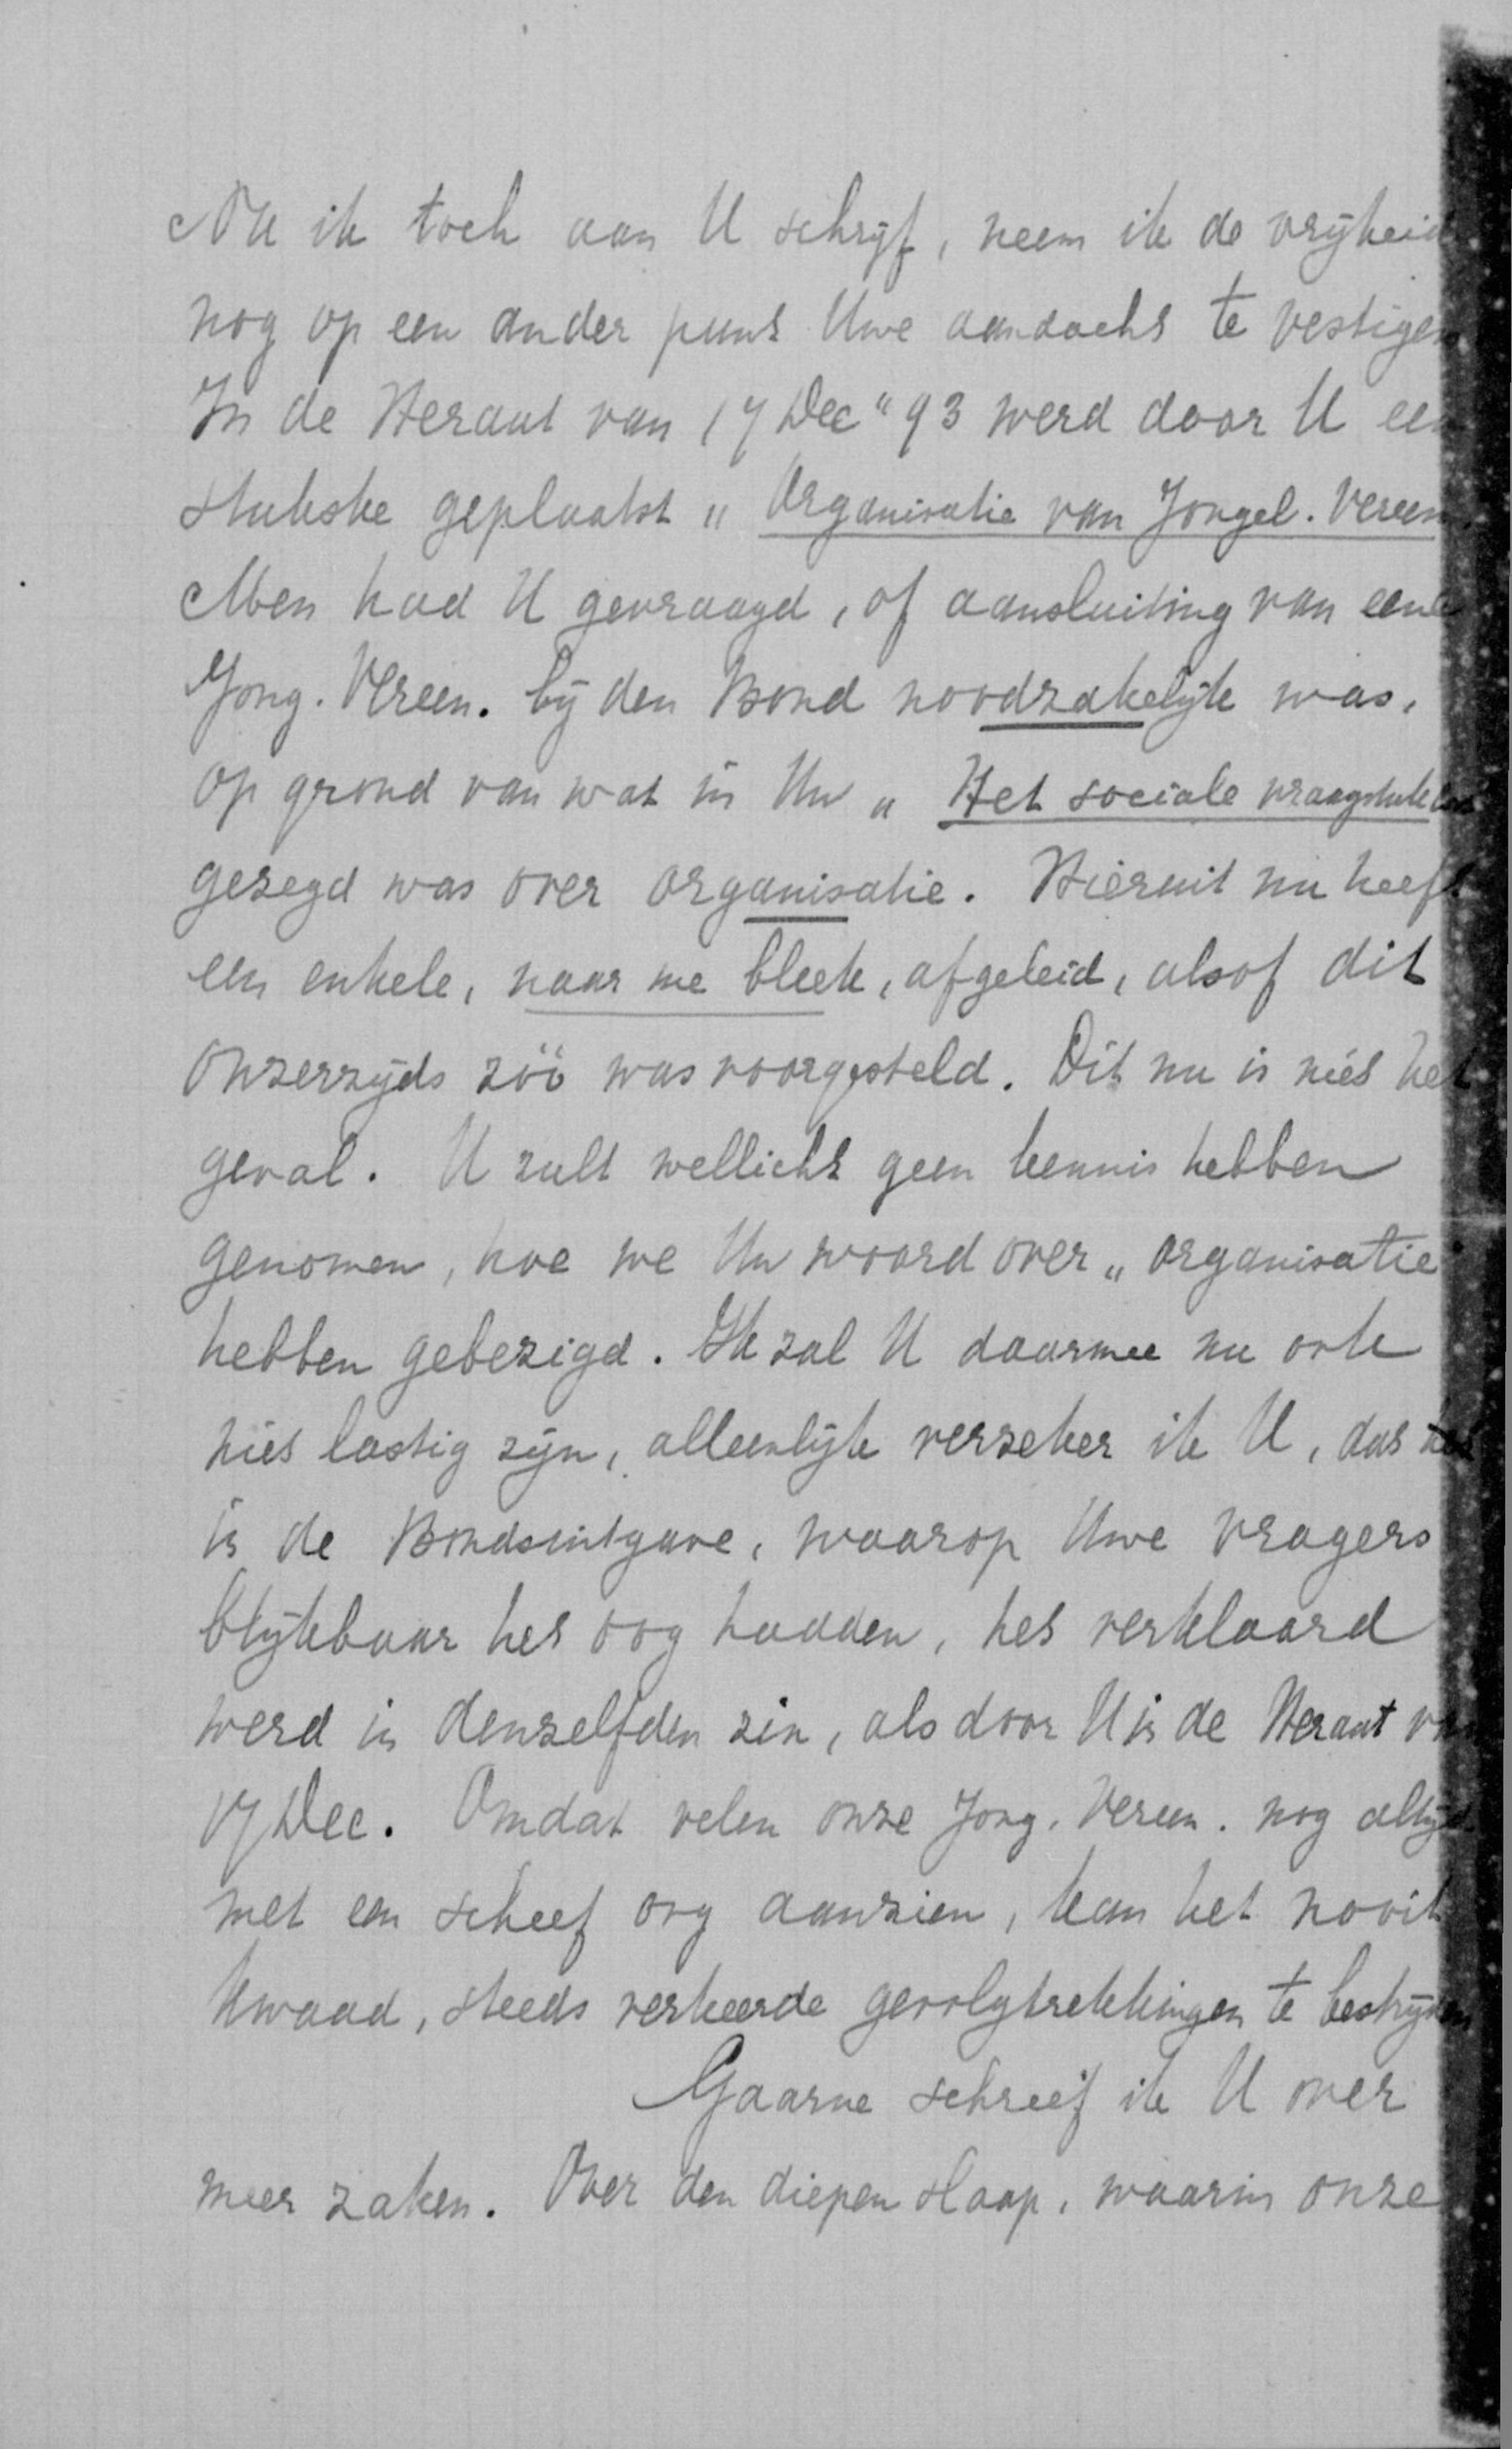 Nu ik toch aan U schrijf, neem ik de vrijheid
nog op een ander punt Uwe aandacht te vestigen
In de Heraut van 17 Dec "93 werd door U een
stukske geplaatst „ Organisatie van Jongel. Vereen.
Men had U gevraagd, of aansluiting van eene
Jong. Vereen. bij den Bond noodzakelijk was,
op grond van wat in Uw „ Het sociale vraagstuk
gezegd was over organisatie. Hieruit nu heeft
een enkele, naar me bleek, afgeleid, alsof dit
onzerzijds zóó was voorgesteld. Dit nu is niet het
geval. U zult wellicht geen kennis hebben
genomen, hoe we Uw woord over „ organisatie
hebben gebezigd. Ik zal U daarmee nu ook
niet lastig zijn, alleenlijk verzeker ik U, dat het
in de Bondsuitgave, waarop Uwe vragers
blijkbaar het oog hadden, het verklaard
werd in denzelfden zin, als door U in de Heraut van
17 Dec. Omdat velen onze Jong. Vereen. nog altijd
met een scheef oog aanzien, kan het nooit
kwaad, steeds verkeerde gevolgtrekkingen te bestrijden
Gaarne schreef ik U over
meer zaken. Over den diepen slaap, waarin onze